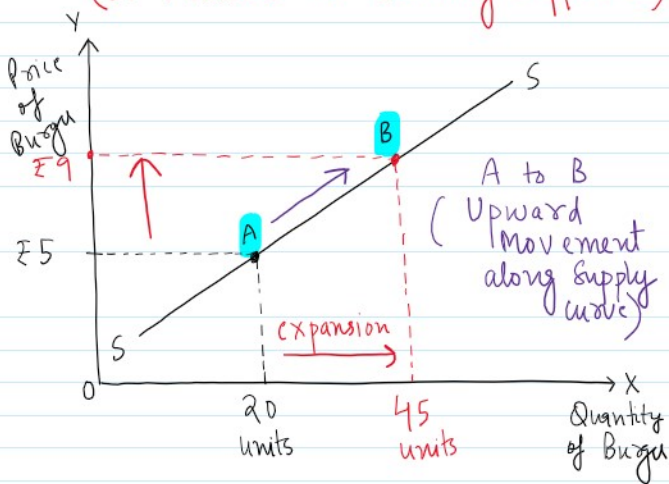 Y
Price
of
Burger
S
B
₹9
A to B
(Upward
Movement
along Supply
curve)
A
₹5
expansion
S
0
X
20
units
45
units
Quantity
of Burger